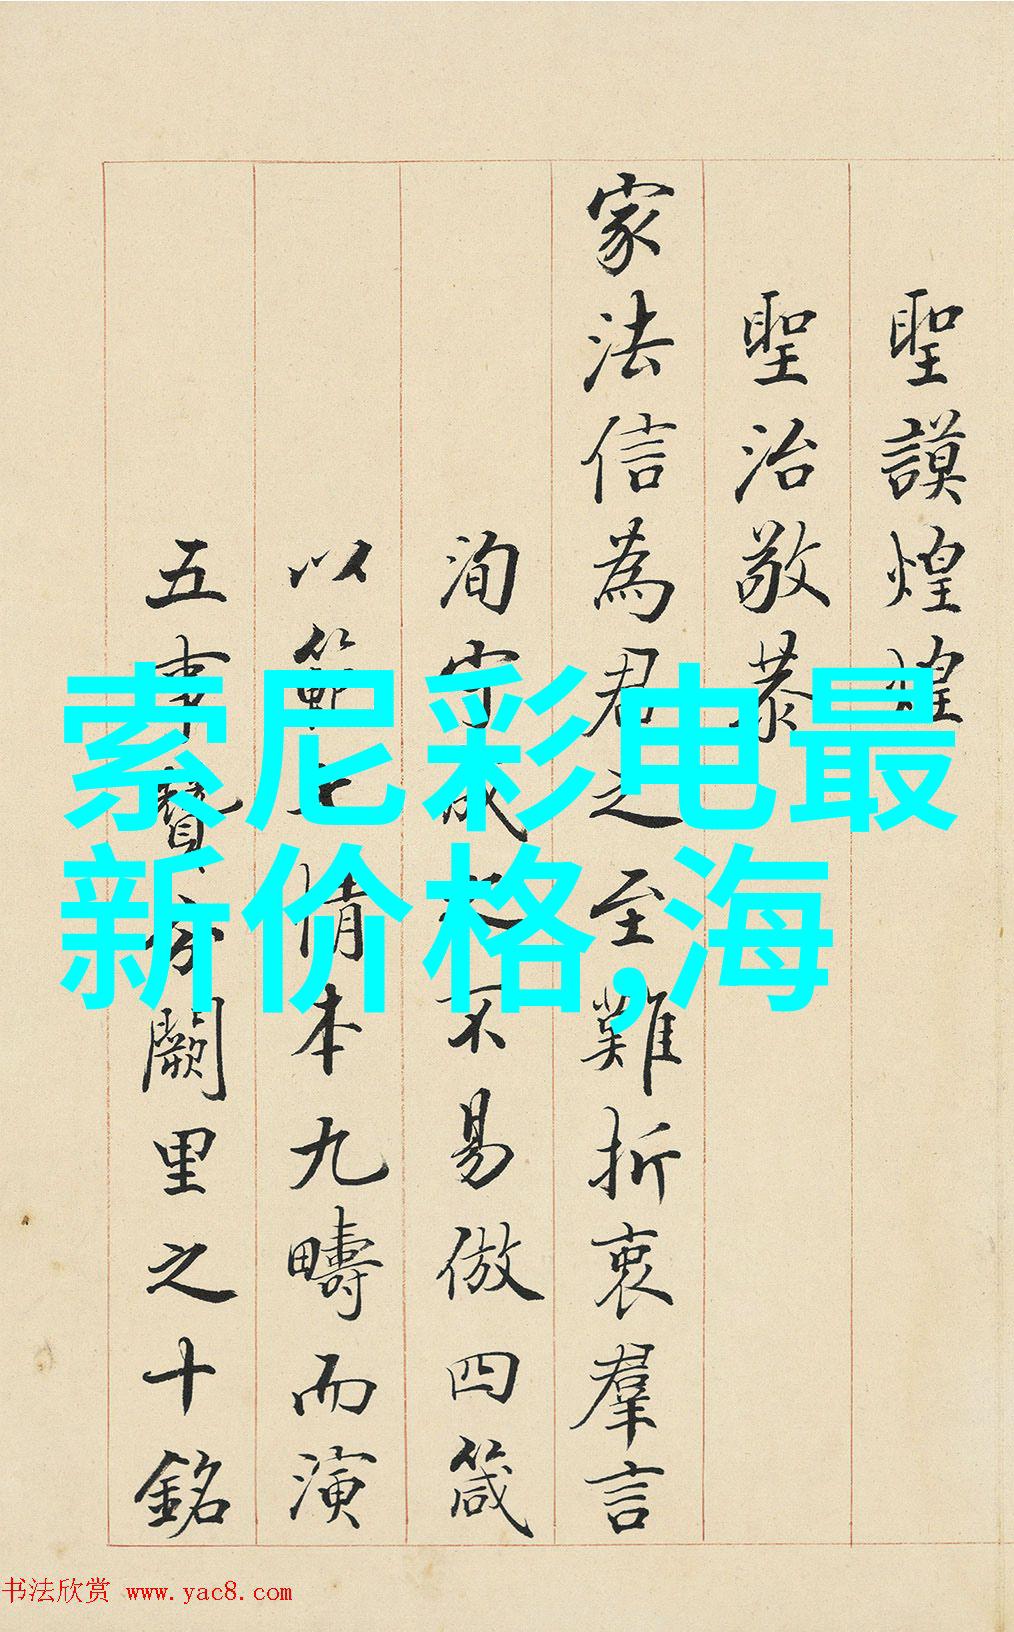 聖謨煌煌
聖治敬恭
家法信為君之至難折衷羣言
洵守成之不易倣四箴
以範七情本九疇而演
五事贊分闕里之十銘
索尼彩电最
新价格,海
书法欣赏 www.yac8.com